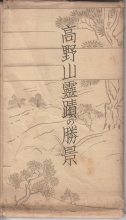 高野山霊蹟の勝景